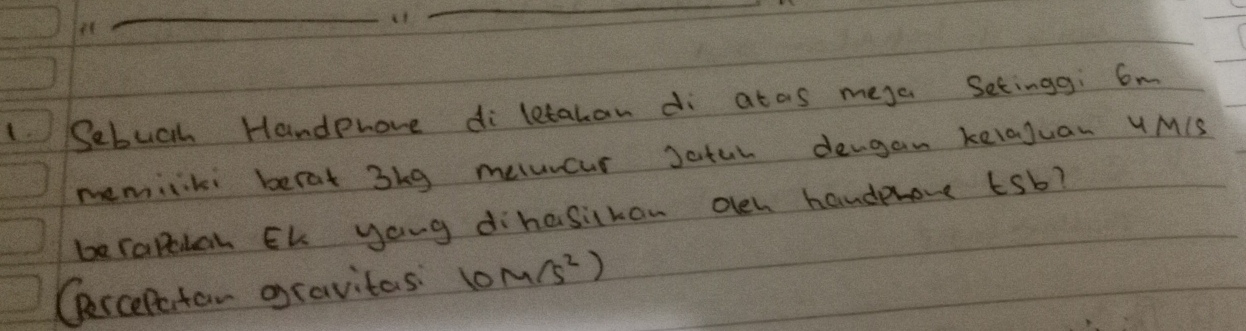 1. Sebuah Handphone di letakan di atas meja setinggi 6m
memiliki berat 3kg meluncur jatuh dengan kelajuan 4 M/s
berapakah Ek yang dihasilkan oleh handphone tsb?
(Percepatan gravitasi 10 M/s²)